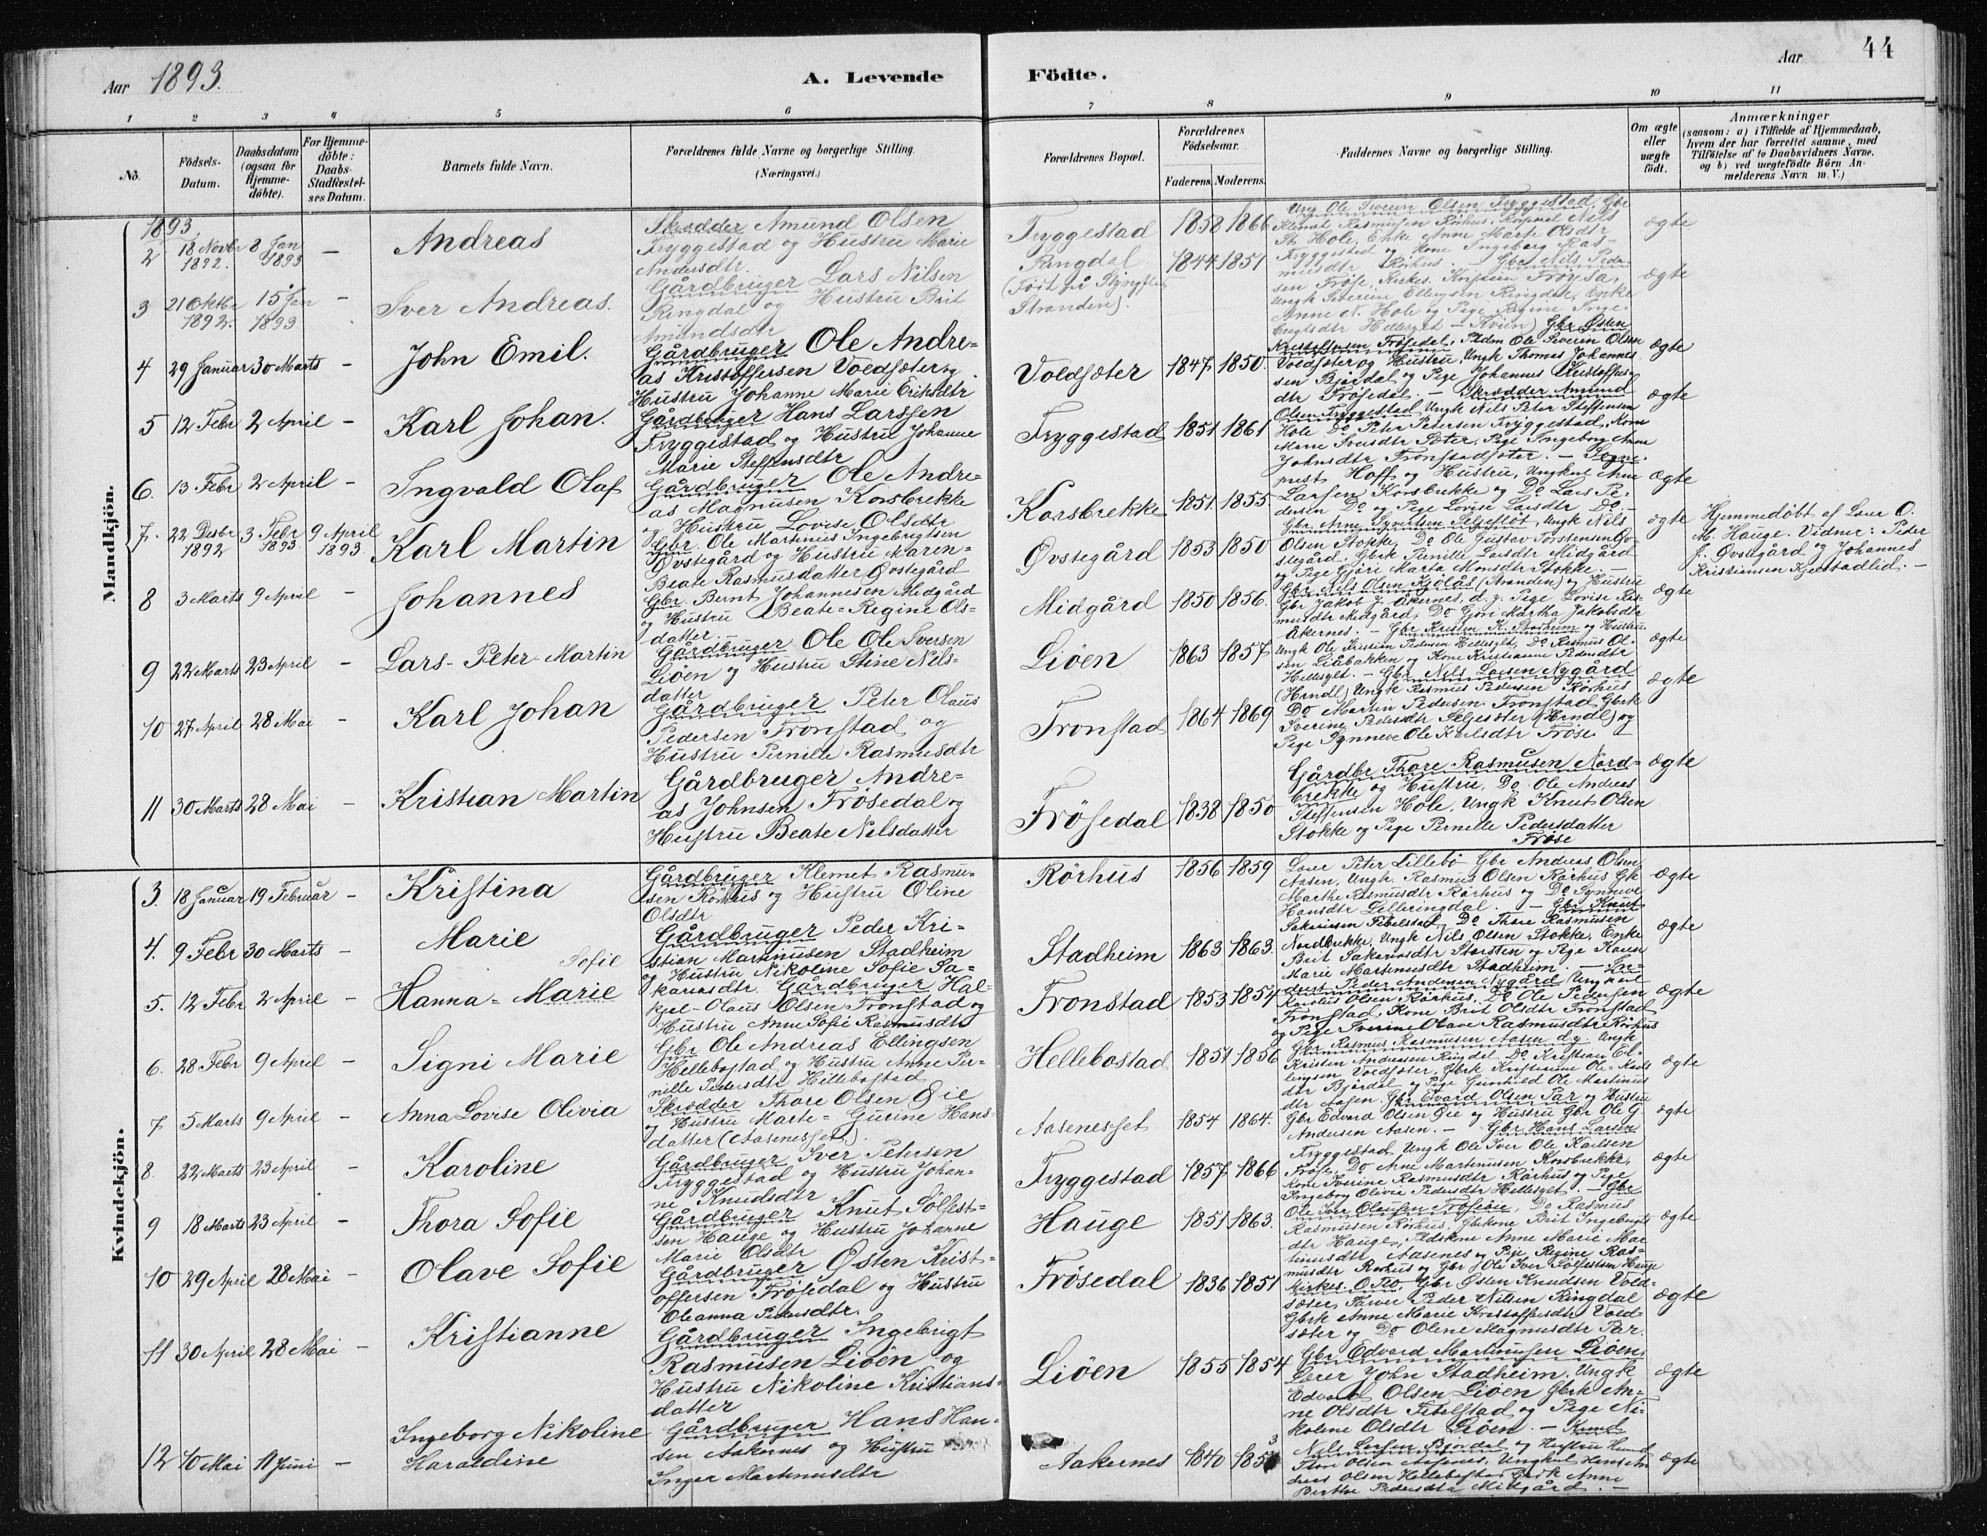 Aar 1893.
A. Levende Födte.
Aar 44
1 2 3 4 5 6 7 8 9 10 11
No.
Födsels-Datum.
Daabsdatum (ogsaa for Hjemme-döbte).
For Hjemme-döbte: Daabs-Stadfæstel-ses Datum.
Barnets fulde Navn.
Forældrenes fulde Navne og borgerlige Stilling.
(Næringsvei.)
Forældrenes Bopæl.
Forældrenes Födselsaar.
Faderens. Moderens.
Faddernes Navne og borgerlige Stilling.
Om ægte eller uægte födt.
Anmærkninger
(saasom: a) i Tilfælde af Hjemmedaab,
hvem der har forrettet samme, med
Tilföielse af to Daabsvidners Navne.
og b) ved uægtefödte Börn An-
melderens Navn m. V.)
Mandkjön.
1893
2 18 Novbr 1892. 8 Jan 1893 — Andreas
Skrædder Amund Olsen
Tryggestad og Hustru Marie
Andersdtr.
Tryggestad 1858 1866
Ung Ole Severin Olsen Tryggestad, Gbr
Klemet Rasmusen Rörhus,
Hole, Enke Anne Marte Olsdtr
Tryggestad og Kone Ingeborg Ras-
musdtr Rörhus.
ægte
3 21 Oktbr 1892. 15 Jan 1893 — Iver Andreas.
Gårdbruger Lars Nilsen
Ringdal og Hustru Brit
Amundsdtr
Ringdal 1844 1851
(Födt på
Stranden).
Gbr. Nils Pede-
sen Fröse,
Ungk Ellingsen Ringdal, Enke
Anne N. Hole og Pige Regine Inge-
brigtsdtr Hellesylt
ægte
4 29 Januar 30 Marts — John Emil.
Gårdbruger Ole Andre-
as Kristoffersen Voldsæter og
Hustru Johanne Marie Eriksdtr
Voldsæter 1847 1850.
Gbr Östen
Kristoffersen Frösedal, Ole Severin Olsen
Voldsæter og Hustru, Ungk Thomas Johannes
sen Bjrdal og Pige Johannes Kristoffers-
dtr Frösedal. —
ægte
5 12 Febr 2 April — Karl Johan.
Gårdbruger Hans Larssen
Tryggestad og Hustru Johanne
Marie Steffensdtr
Tryggestad 1851 1861
Skrædder Amund
Olsen Tryggestad, Ungk Nils Peter Steffensen
Hole Do Peter Petersen Tryggestad, Kone
Marie Pige Ingeborg Anne
Johnsdtr Tronstadsæter. —
ægte
6. 13 Febr 2 April — Ingvald Olaf
Gårdbruger Ole Andre-
as Magnusen Korsbrekke
og Hustru Lovise Olsdtr
Korsbrekke 1851. 1855
Sogne-
prest Hoff og Hustru, Ungkarl
Larsen Korsbrekke og Do Lars Pe-
dersen Do og Pige Lovise Larsdtr Do —
ægte
7. 22 Desbr 1892 3 Febr 1893 9 April 1893. Karl Martin
Gbr. Ole Martinus Ingebrigtsen
Øvstegård og Hustru Maren-
Beate Rasmusdatter Øvstegård
Øvstegård 1853 1850
Gbr. Arne Synvisen Seljeflot, Ungk Nils
Olsen Stokke, Do Ole Gustav Torstensen Öv-
stegård, Gbrk Pernille Larsdtr Midgård
og Pige Göri Marta Monsdtr Stokke. —
ægte
Hjemmedöbt af Lærer O.
M. Hauge. Vidner: Peder
J. Øvstegård og Johannes
Kristiansen Kjelstadlid. —
8 3 Marts 9 April — Johannes
Gbr. Bernt Johannesen Midgård
og Hustru Beate-Regine Ols-
datter.
Midgård 1850 1856.
Gbr Nils Olsen Kjölås (Stranden) og Hustru
Gbr Jakob J. Åkernes, d.y. Pige Lovise Ras-
musdtr Midgård, Do Göri Martha Jakobsdtr
Åkernes. —
ægte
9 22 Marts 23 April — Lars-Peter-Martin
Gårdbruger Ole Ole Iversen
Liöen og Hustru Stine Nils-
datter
Liöen 1863 1857
Gbr Kristen K. Stadheim og Hustru
Ungk Ole Kristian Pedersen Hellesylt, Do Rasmus Ol-
sen Lidbakken og Kone Kristianne Pedersdtr
Hellesylt. —
ægte
10 27 April 28 Mai — Karl Johan
Gårdbruger Peter Olaus
Pedersen Tronstad og
Hustru Pernille Rasmusdtr
Tronstad 1864 1869
Gbr Nils Larsen Nygård
(Hrndl) Ungk Rasmus Pedersen Rörhus
Do Martin Pedersen Tronstad Gbrk
Sverine Pedersdtr Seljesæter (Hrindl) og
Pige Synneve Ole Karlsdtr Fröse
ægte
11 30 Marts 28 Mai — Kristian Martin
Gårdbruger Andre-
as Johnsen Frösedal og
Hustru Beate Nilsdatter
Frösedal 1838 1850
Gårdbr Thore Rasmusen Nord-
brekke og Hustru, Do Ole Andreas
Steffensen Hole, Ungk Knut Olsen
Stokke og Pige Pernille Pedersdatter
Fröse
ægte
Kvindekjön.
3. 18 Januar 19 Februar — Kristina
Gårdbruger Klemet Rasmu-
sen Rörhus og Hustru Oline
Olsdtr
Rörhus 1856 1859
Lærer Peter Lillebö Gbr Andreas Olsen
Aasen, Ungk Rasmus Olsen Rörhus Gbrk
Marthe Rasmusdtr Rörhus og Do Synneve
Hansdtr Lilleringdal. —
ægte
4. 9 Febr 30 Marts — Marie Sofie
Gårdbruger Peder Kri-
stian Martinusen Stadheim
og Hustru Nikoline Sofie Sa-
kariasdtr.
Stadheim 1863 1863.
Gbr Knut
Sakariasen Fibelstad, Do Thore Rasmusen
Nordbrekke, Ungk Nils Olsen Stokke, Enke
Brit Sakariasdtr Storsten og Pige Karen
Marie Martinusdtr Stadheim. —
ægte
5. 12 Febr 2 April — Hanna-Marie
Gårdbruger Hal-
kjel-Olaus Olsen Tronstad og
Hustru Anne Sofie Rasmusdtr
Tronstad 1853 1854
Peder Andersen Nygård Ungkarl
Karolus Olsen Rörhus, Do Ole Pedersen
Tronstad, Kone Brit Olsdtr Tronstad
og Pige Sverine Olave Rasmusdtr Rörhus
ægte
6. 28 Febr 9 April — Signi Marie
Gbr Ole Andreas Ellingsen
Hellebostad og Hustru Anne Per-
nille Pedersdtr Hellebostad
Hellebostad 1851 1856
Gbr Rasmus Rasmusen Aasen d.y. Ungk
Kristen Andersen Ringdal Do Kristian El-
lingsen Voldsæter, Gbrk Kristianne Ole-Kads
dtr Björdal og Pige Gunhild Ole Martinus
dtr Aasen.
ægte
7 5 Marts 9 April — Anna Lovise Olivia
Skrædder Thore Olsen Øie
og Hustru Marte-Gurine Hans-
datter (Aasenesset).
Aasenesset 1854 1864.
Gbr Edvard Olsen Par og Hustru
Gbr Edvard Olsen Øie og Hustru Gbr Ole G.
Andersen Aasen. —
ægte
8. 22 Marts 23 April — Karoline
Gårdbruger Iver Petersen
Tryggestad og Hustru Johan-
ne Knudsdtr
Tryggestad 1857 1866
Gbr Hans Larsen
Tryggestad Ungk Ole Iver Ole Karlsen
Fröse, Do Arne Martinusen Korsbrekke,
Kone Sverine Rasmusdtr Rörhus og Pige
Ingeborg Olivie Pedersdtr Hellesylt. —
ægte
9 18 Marts 23 April — Thora Sofie
Gårdbruger Knut Solfest-
sen Hauge og Hustru Johanne
Marie Olsdtr
Hauge 1851 1863.
Gbr
Ole Iver Olausen Fröseöie, Do Rasmus
Rasmusen Rörhus, Gbrkone Brit Ingebrigts
dtr Hauge, Anne Marie Mar
tinusdtr Aasenes og Pige Regine Ras-
musdtr Rörhus og Gbr Ole Iver Solfestsen Hauge
ægte
10 29 April 28 Mai — Olave Sofie
Gårdbruger Østen Krist-
offersen Frösedal og Hustru
Oleanna Pedersdtr.
Frösedal 1836 1851
Gbr Østen Knudsen Vold-
sæter, Peder Nilsen Ringdal
Gbrk Anne Marie Kristoffersdtr Vold-
sæter og Do Oline Magnusdtr Par.
ægte
11 30 April 28 Mai — Kristianne
Gårdbruger Ingebrigt
Rasmusen Liöen og
Hustru Nikoline Kristians-
datter
Liöen 1855 1854
Gbr Edvard Martinusen Liöen,
Lærer John Stadheim, Ungk
Edvard Olsen Liöen Gbrk An-
ne Olsdtr Fibelstad og Pige Ni-
koline Olsdtr Liöen. —
ægte
12 10 Mai 11 Juni — Ingeborg Nikoline
Haraldine
Gårdbruger Hans Han-
sen Aakernes og Hustru
Inger Martinusdtr
Aakernes 1840 185 3
Nils Larsen Bjordal og Hustru
Olsen Aasenes, Ungkarl Hans An
dreas Olsen Hellebostad Gbrk Anne
Berthe Pedersdtr Midgård. —
ægte